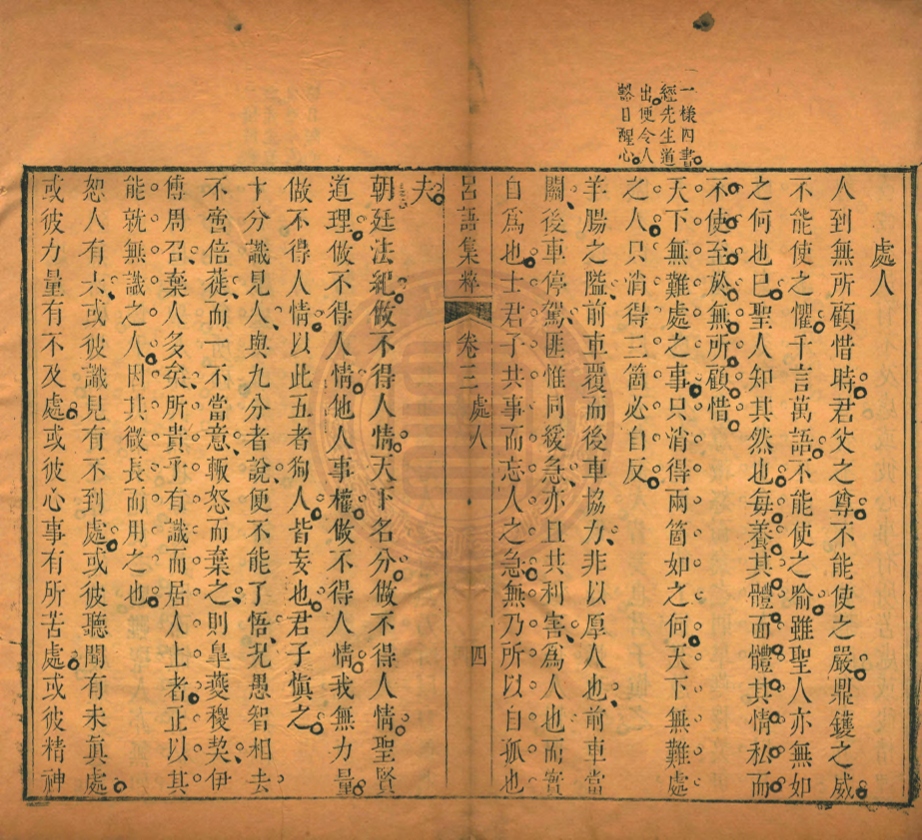 一様四書
經先生道
出便令人
豁目醒心
處人
人到無所顧惜時君父之尊不能使之嚴鼎鑊之威
不能使之懼千言萬語不能使之喻雖聖人亦無如
之何也已聖人知其然也每養其體面體其情私而
不使至於無所顧惜
天下無難處之事只消得兩箇如之何天下無難處
之人只消得三箇必自反
羊腸之隘前車覆而後車協力非以厚人也前車當
關後車停駕匪惟同緩急亦且共利害爲人也而實
自爲也士君子共事而忘人之急無乃所以自孤也
呂語集粹 卷三 處人 四
夫
朝廷法紀做不得人情天下名分做不得人情聖賢
道理做不得人情他人事權做不得人情我無力量
做不得人情以此五者狥人皆妄也君子慎之
十分識見人與九分者說便不能了悟况愚智相去
不啻倍蓰而一不當意輙怒而棄之則臯夔稷契伊
傅周召棄人多矣所貴乎有識而居人上者正以其
能就無識之人因其微長而用之也
恕人有六或彼識見有不到處或彼聽聞有未眞處
或彼力量有不及處或彼心事有所苦處或彼精神